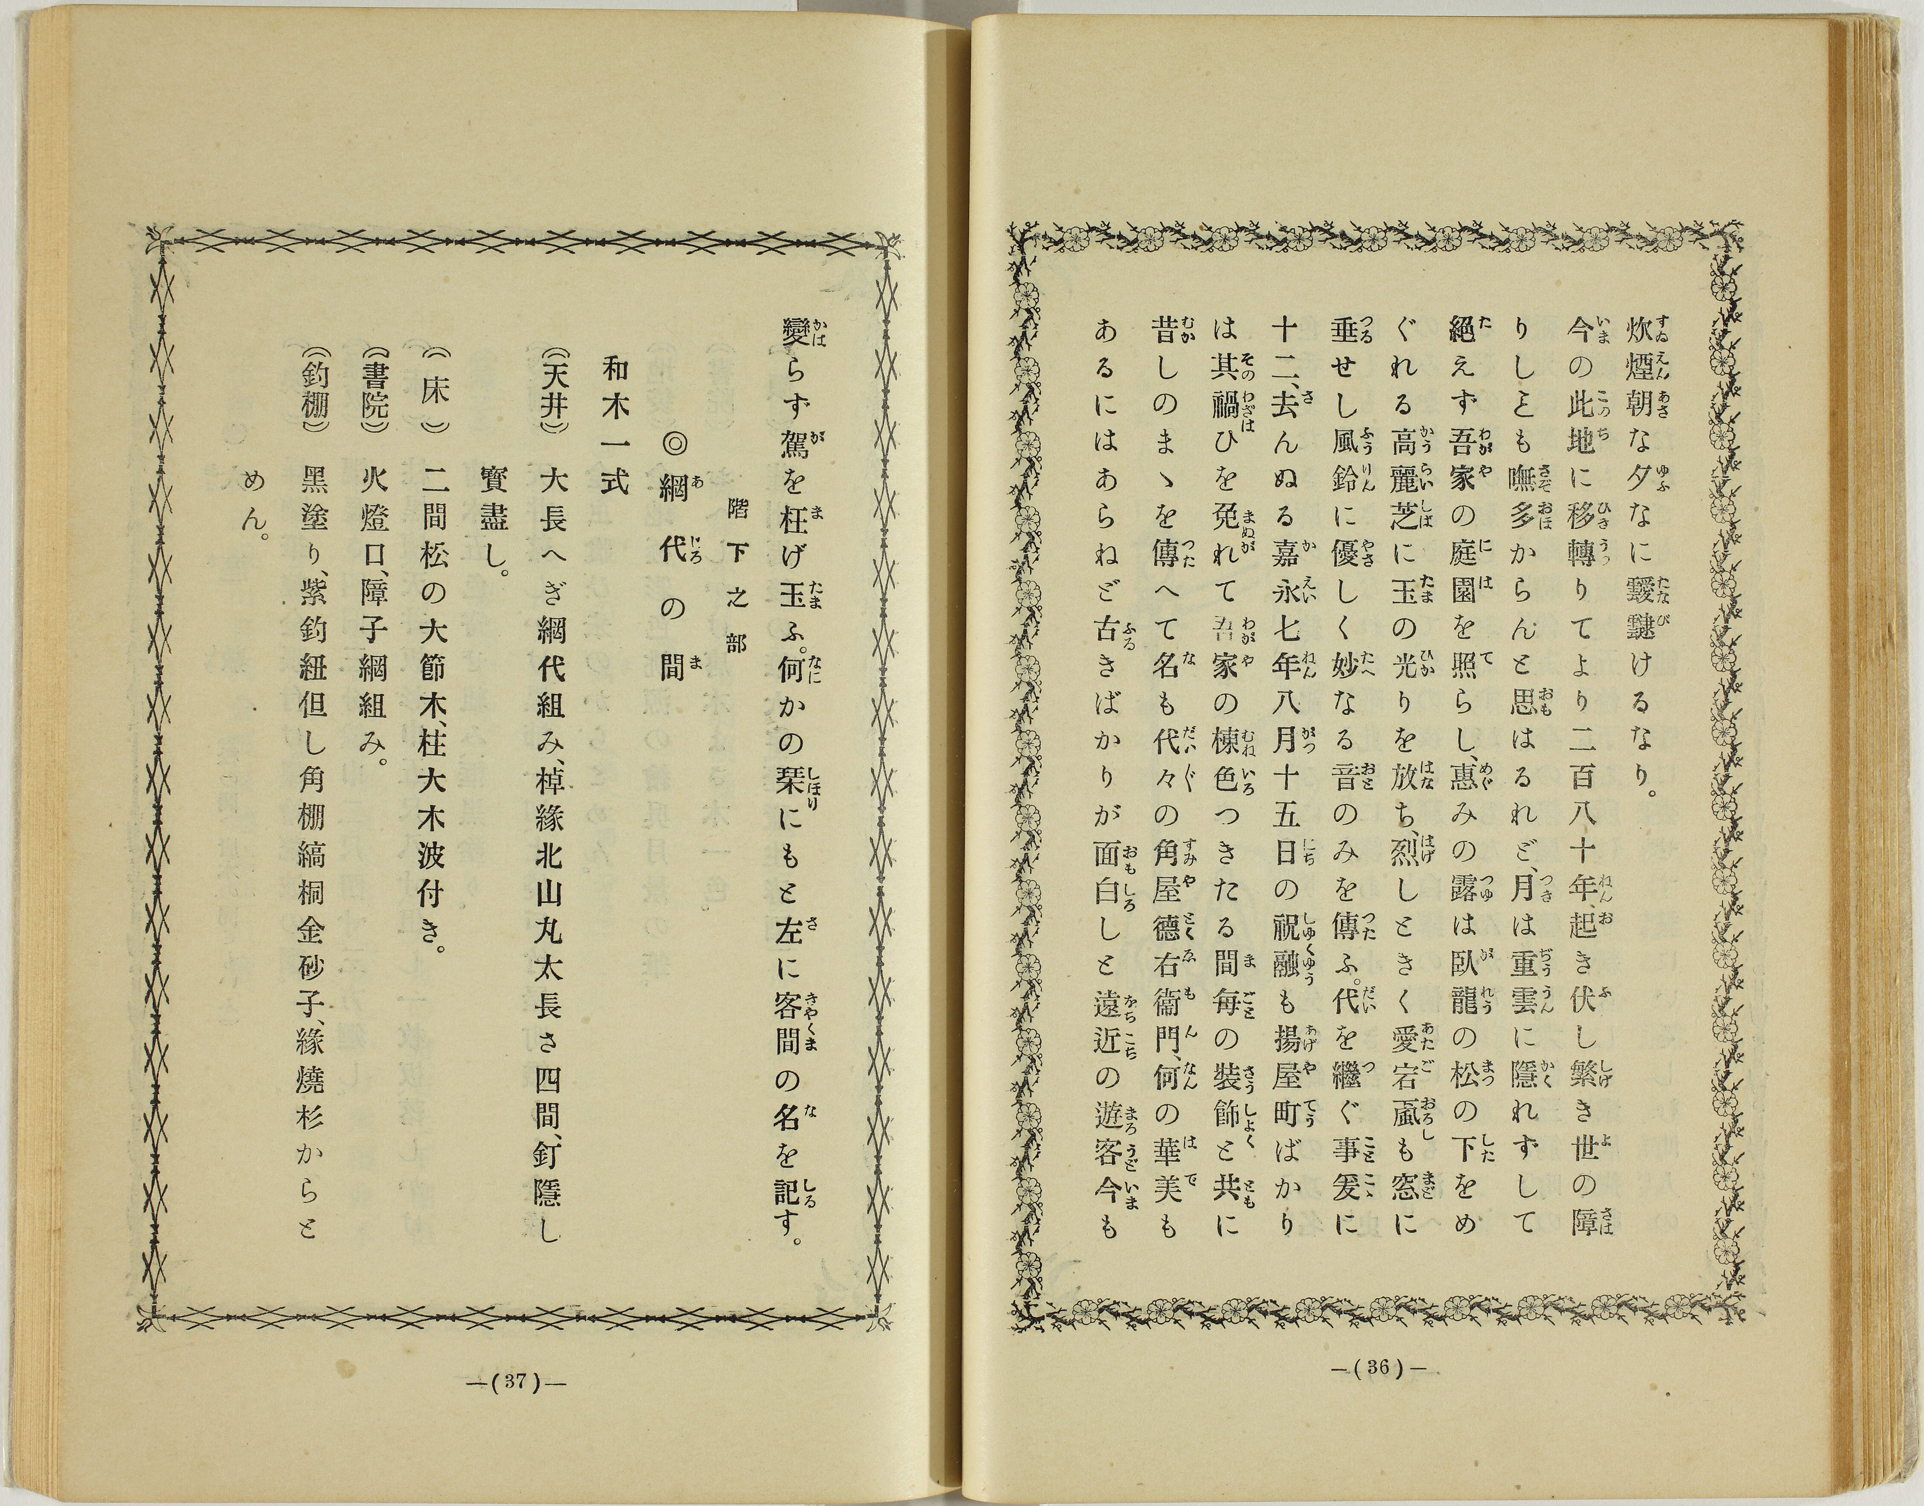 炊煙朝な夕なに靉靆けるなり。
今の此地に移轉りてより二百八十年、起き伏し繁き世の障
りしとも嘸多からんと思はるれど、月は重雲に隱れずして
絕えず吾家の庭園を照らし、惠みの露は臥龍の松の下をめ
ぐれる高麗芝に玉の光りを放ち、烈しときく愛宕颪も窓に
垂せし風鈴に優しく妙なる音のみを傳ふ。代を繼ぐ事爰に
十二、去んぬる嘉永七年八月十五日の祝融も揚屋町ばかり
は其禍ひを免れて吾家の棟色つきたる間每の裝飾と共に
昔しのまゝを傳へて名も代々の角屋德右衞門、何の華美も
あるにはあらねど古きばかりが面白しと遠近の遊客今も
—(36)—
變らず駕を枉げ玉ふ。何かの栞にもと左に客間の名を記す。
階下之部
◎網代の間
和木一式
(天井) 大長へぎ網代組み、棹緣北山丸太長さ四間、釘隱し
寳盡し。
(床) 二間松の大節木、柱大木波付き。
(書院) 火燈口、障子網組み。
(釣棚) 黑塗り、紫釣紐但し角棚縞桐金砂子、緣燒杉からと
めん。
—(37)—